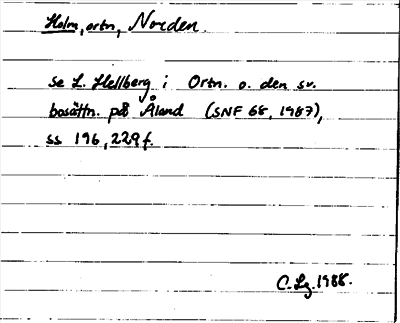 Holm, ortn, Norden.
se L. Hellberg i Ortn. o. den sv.
bosättn. på Åland (SNF 68, 1987),
ss 196, 229f.
C. Lg. 1988.